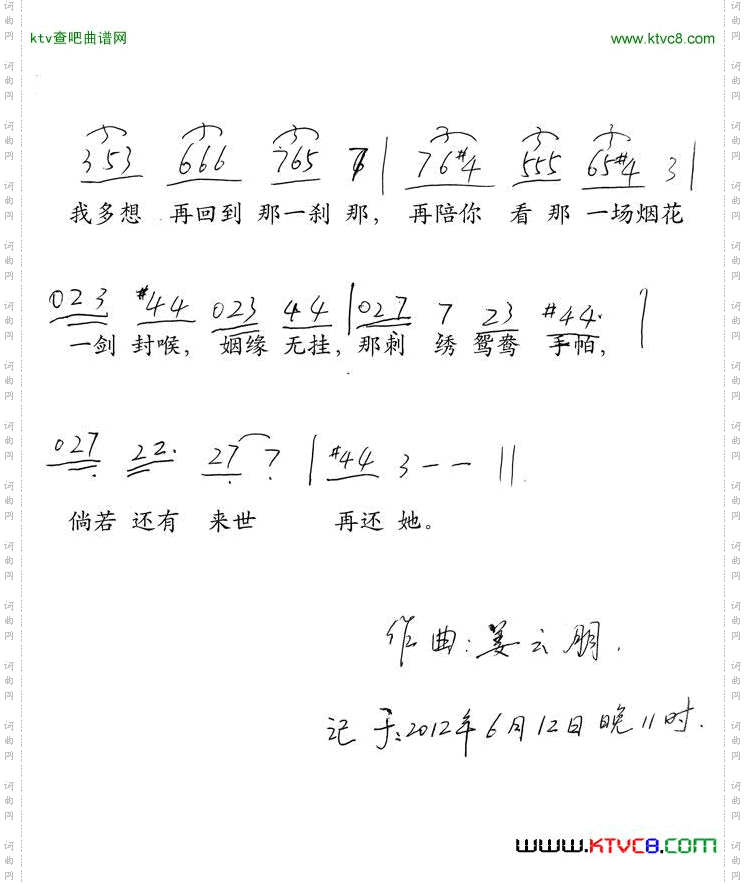 ktv查吧曲谱网 www.ktvc8.com
353 666 765 7 | 76#4 555 65#4 3 |
我多想 再回到 那一刹 那， 再陪你 看 那 一场烟花
023 #44 023 44 | 027 7 23 #44. |
一剑 封喉， 姻缘 无挂，那刺 绣 鸳鸯 手帕，
027 22. 27 7 | #44 3 - - ||
倘若 还有 来世 再还 她。
作曲：姜云朋．
记于：2012年6月12日晚11时．
www.KTVC8.com